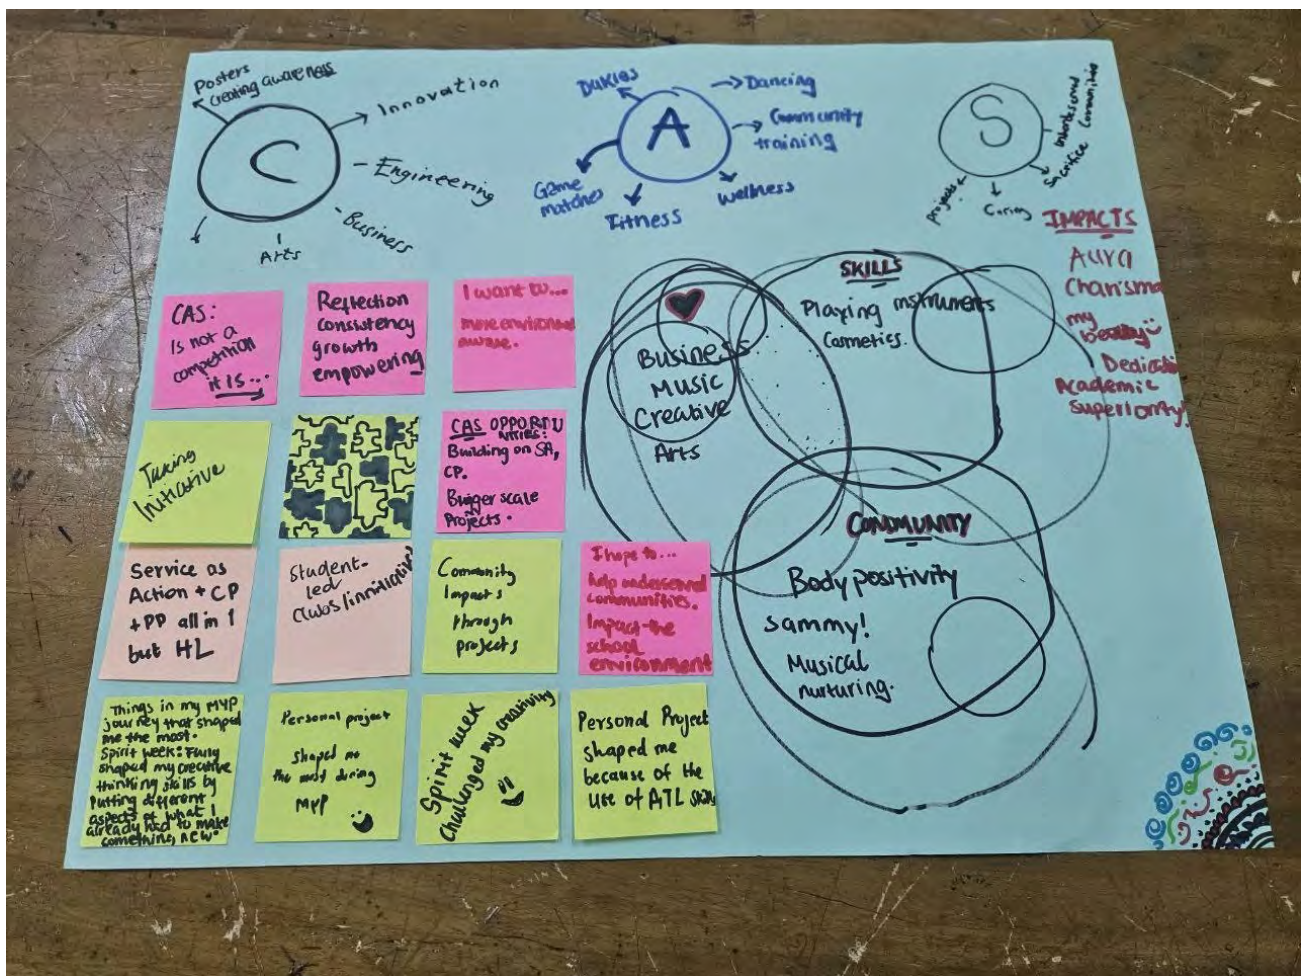 Posters
creating awareness
Innovation
C
Engineering
Business
Arts
Dukies
Dancing
A
Community
training
Game
matches
Fitness
Wellness
S
Communities
Sacrifice
Caring
Projects
IMPACTS
Aura
Charisma
my
beauty
Dedicati
Academic
Superiority!
CAS:
Is not a
competition
it is...
Reflection
consistency
growth
empowering
I want to...
more environment
aware.
Taking
Initiative
CAS OPPORTU
NITIES:
Building on SA,
CP.
Bigger scale
Projects.
Service as
Action + CP
+ PP all in 1
but HL
Student-
led
Clubs/inniviatives
Community
Impacts
through
projects
I hope to...
help underserved
communities.
Impact the
school
environment
Things in my MYP
journey that shaped
me the most.
Spirit week: Fully
shaped my creative
thinking skills by
putting different
aspects of what I
already had to make
something new.
Personal project
shaped me
the most during
MYP
Spirit week
challenged my creativity
Personal Project
shaped me
because of the
use of ATL skills
Business
Music
Creative
Arts
SKILLS
Playing instruments
Cosmetics.
COMMUNITY
Body positivity
sammy!
Musical
nurturing.